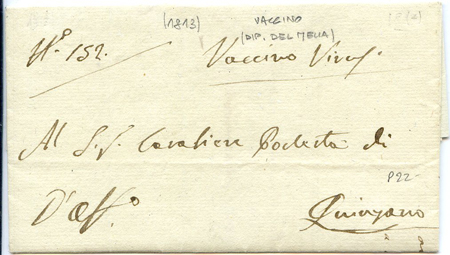 (1813) VACCINO
(DIP. DEL MELLA)
N.º 152. Vaccino Vivo
Al S.r Cavaliere Podestà di
P22-
D'Aff.º Quinzano